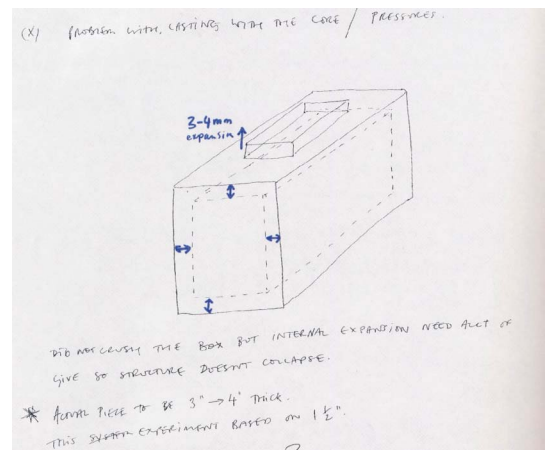 (X) PROBLEM WITH CASTING WITH THE CORE / PRESSURES.
3-4mm
expansion
DID NOT CRUSH THE BOX BUT INTERNAL EXPANSION NEED OF
GIVE SO STRUCTURE DOESNT COLLAPSE.
* ACTUAL PIECE TO BE 3" → 4" THICK.
THIS EXPERIMENT BASED ON 1 1/2".